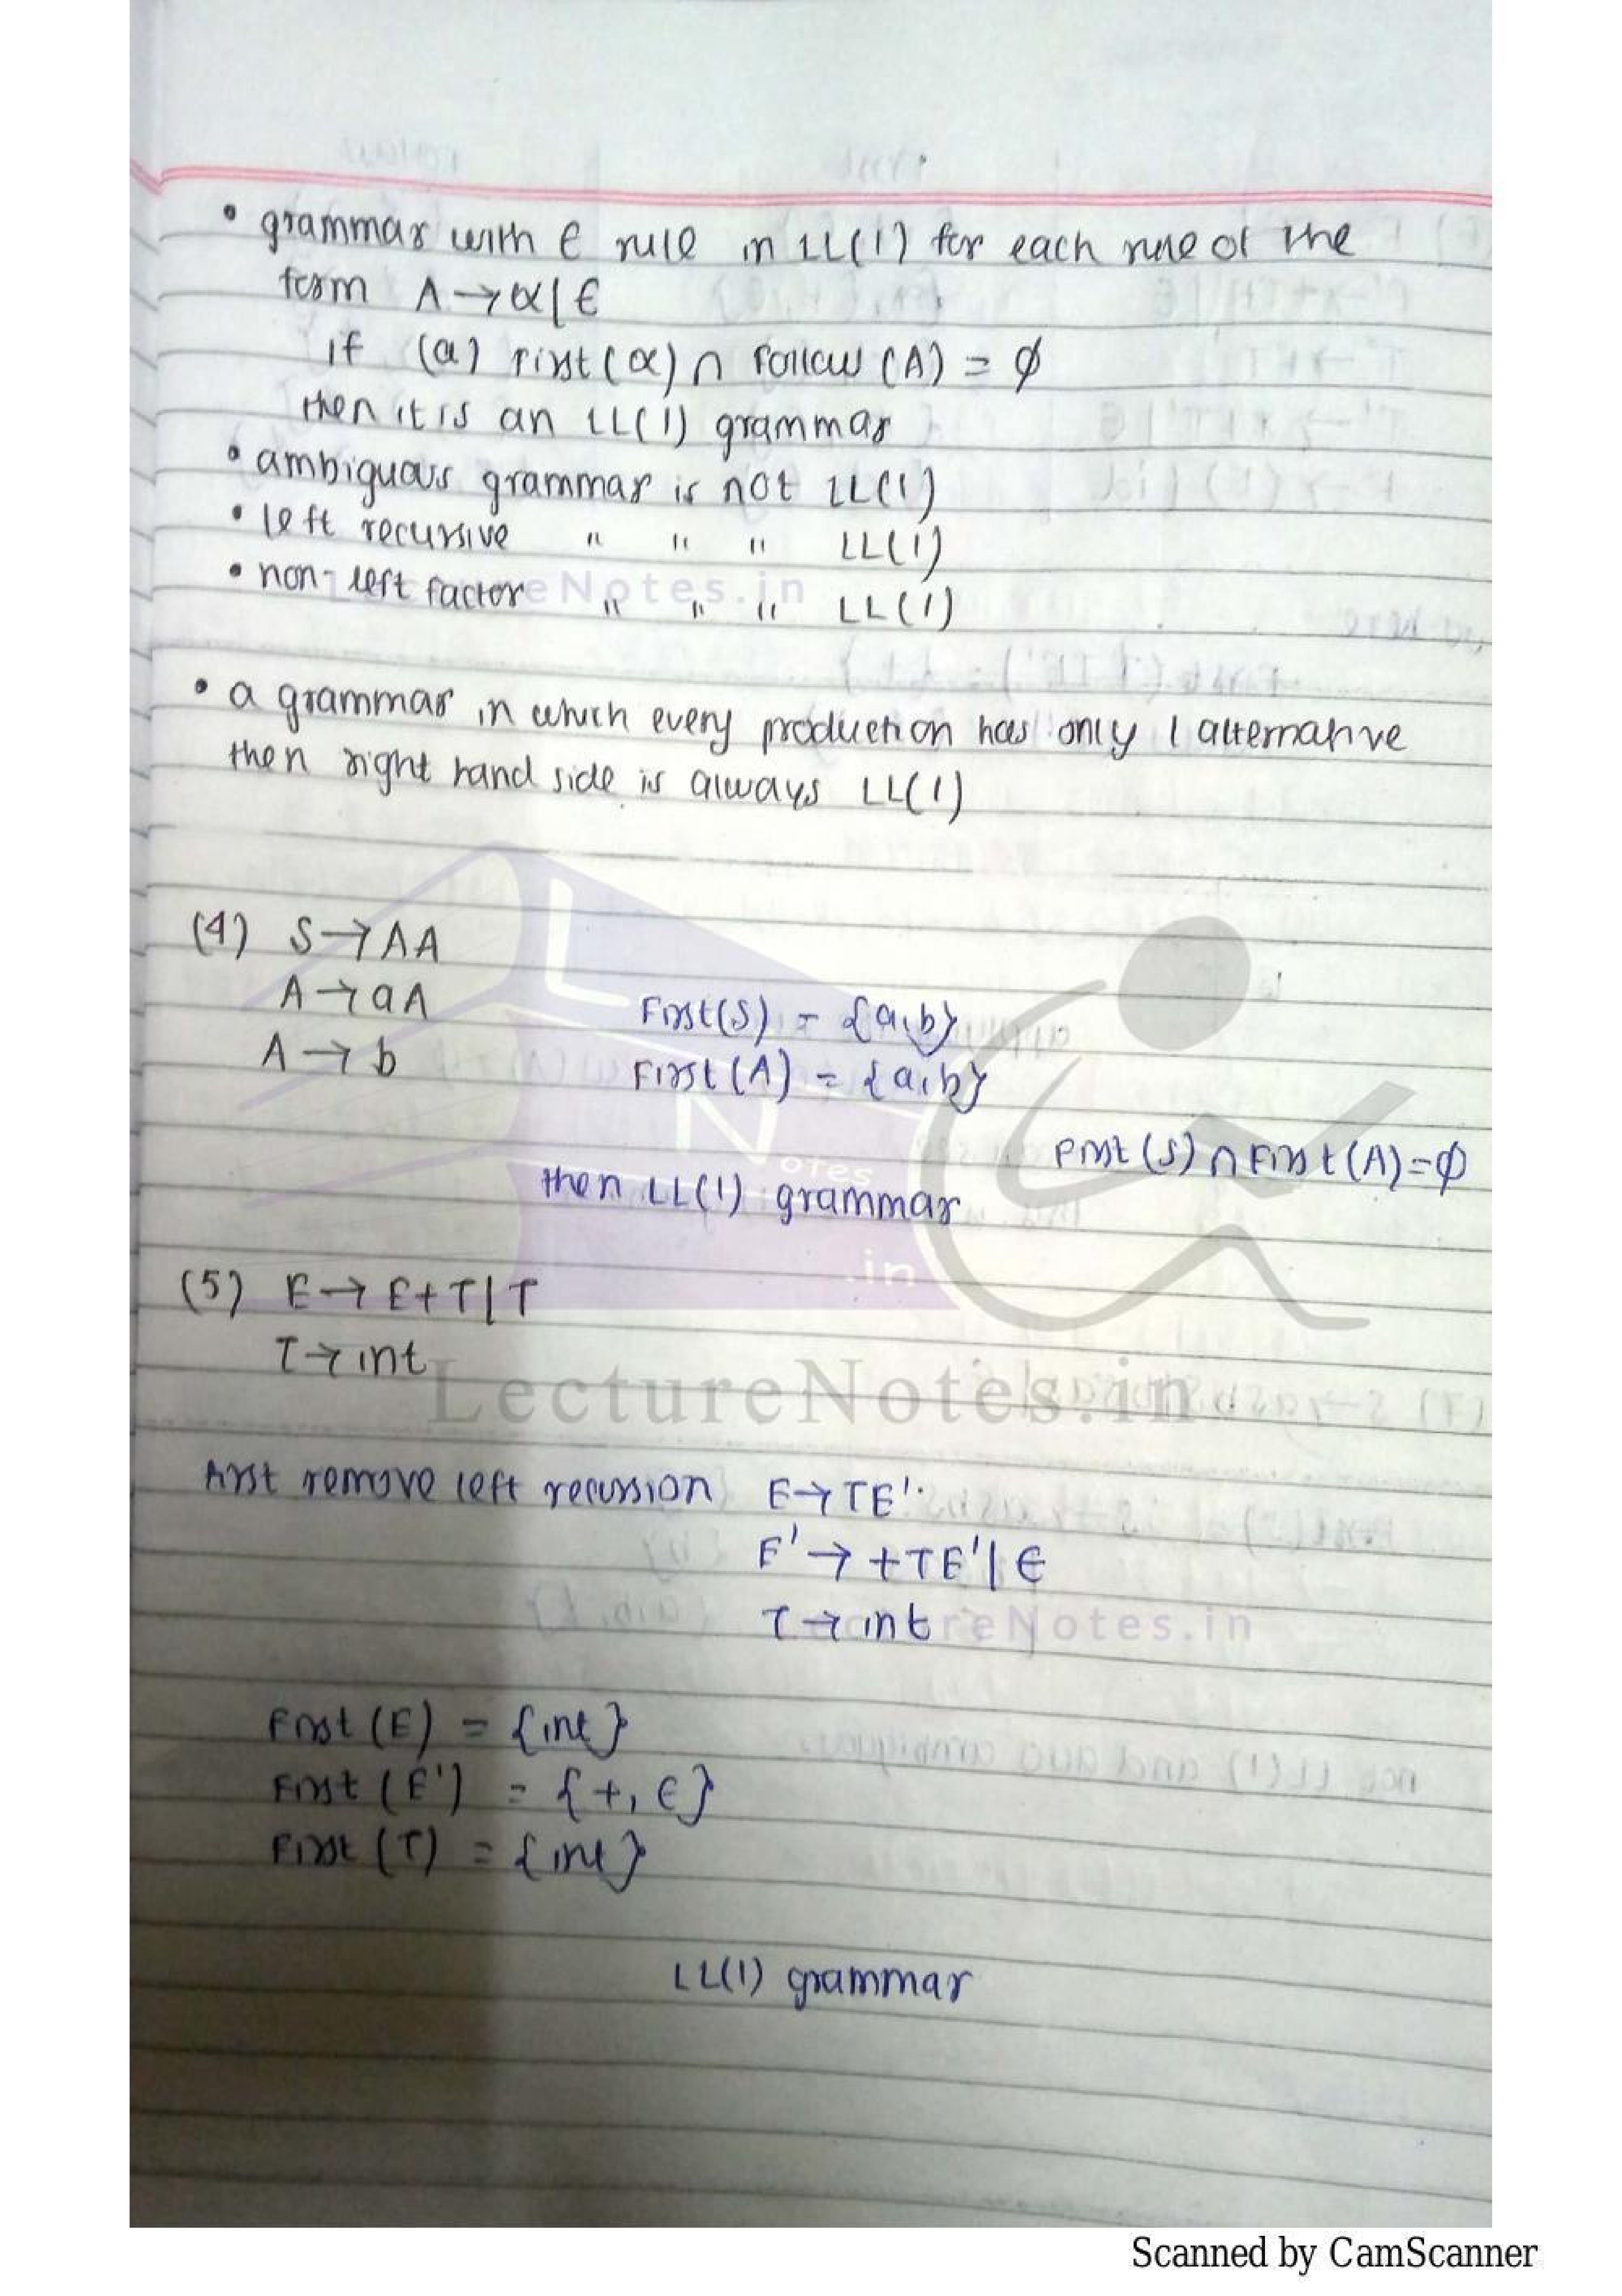 • grammar with ϵ rule in LL(1) for each rule of the
form A → α | ϵ
if (a) First(α) ∩ Follow(A) = ϕ
then it is an LL(1) grammar
• ambiguous grammar is not LL(1)
• left recursive " " " LL(1)
• non-left factor " " " LL(1)
LectureNotes.in
• a grammar in which every production has only 1 alternative
then right hand side is always LL(1)
(4) S → AA
A → aA
A → b
First(S) = {a,b}
First(A) = {a,b}
First(S) ∩ First(A) = ϕ
then LL(1) grammar
(5) E → E+T | T
T → int
LectureNotes.in
first remove left recursion E → TE'
E' → +TE' | ϵ
T → int
LectureNotes.in
First(E) = {int}
First(E') = {+, ϵ}
First(T) = {int}
LL(1) grammar
Scanned by CamScanner